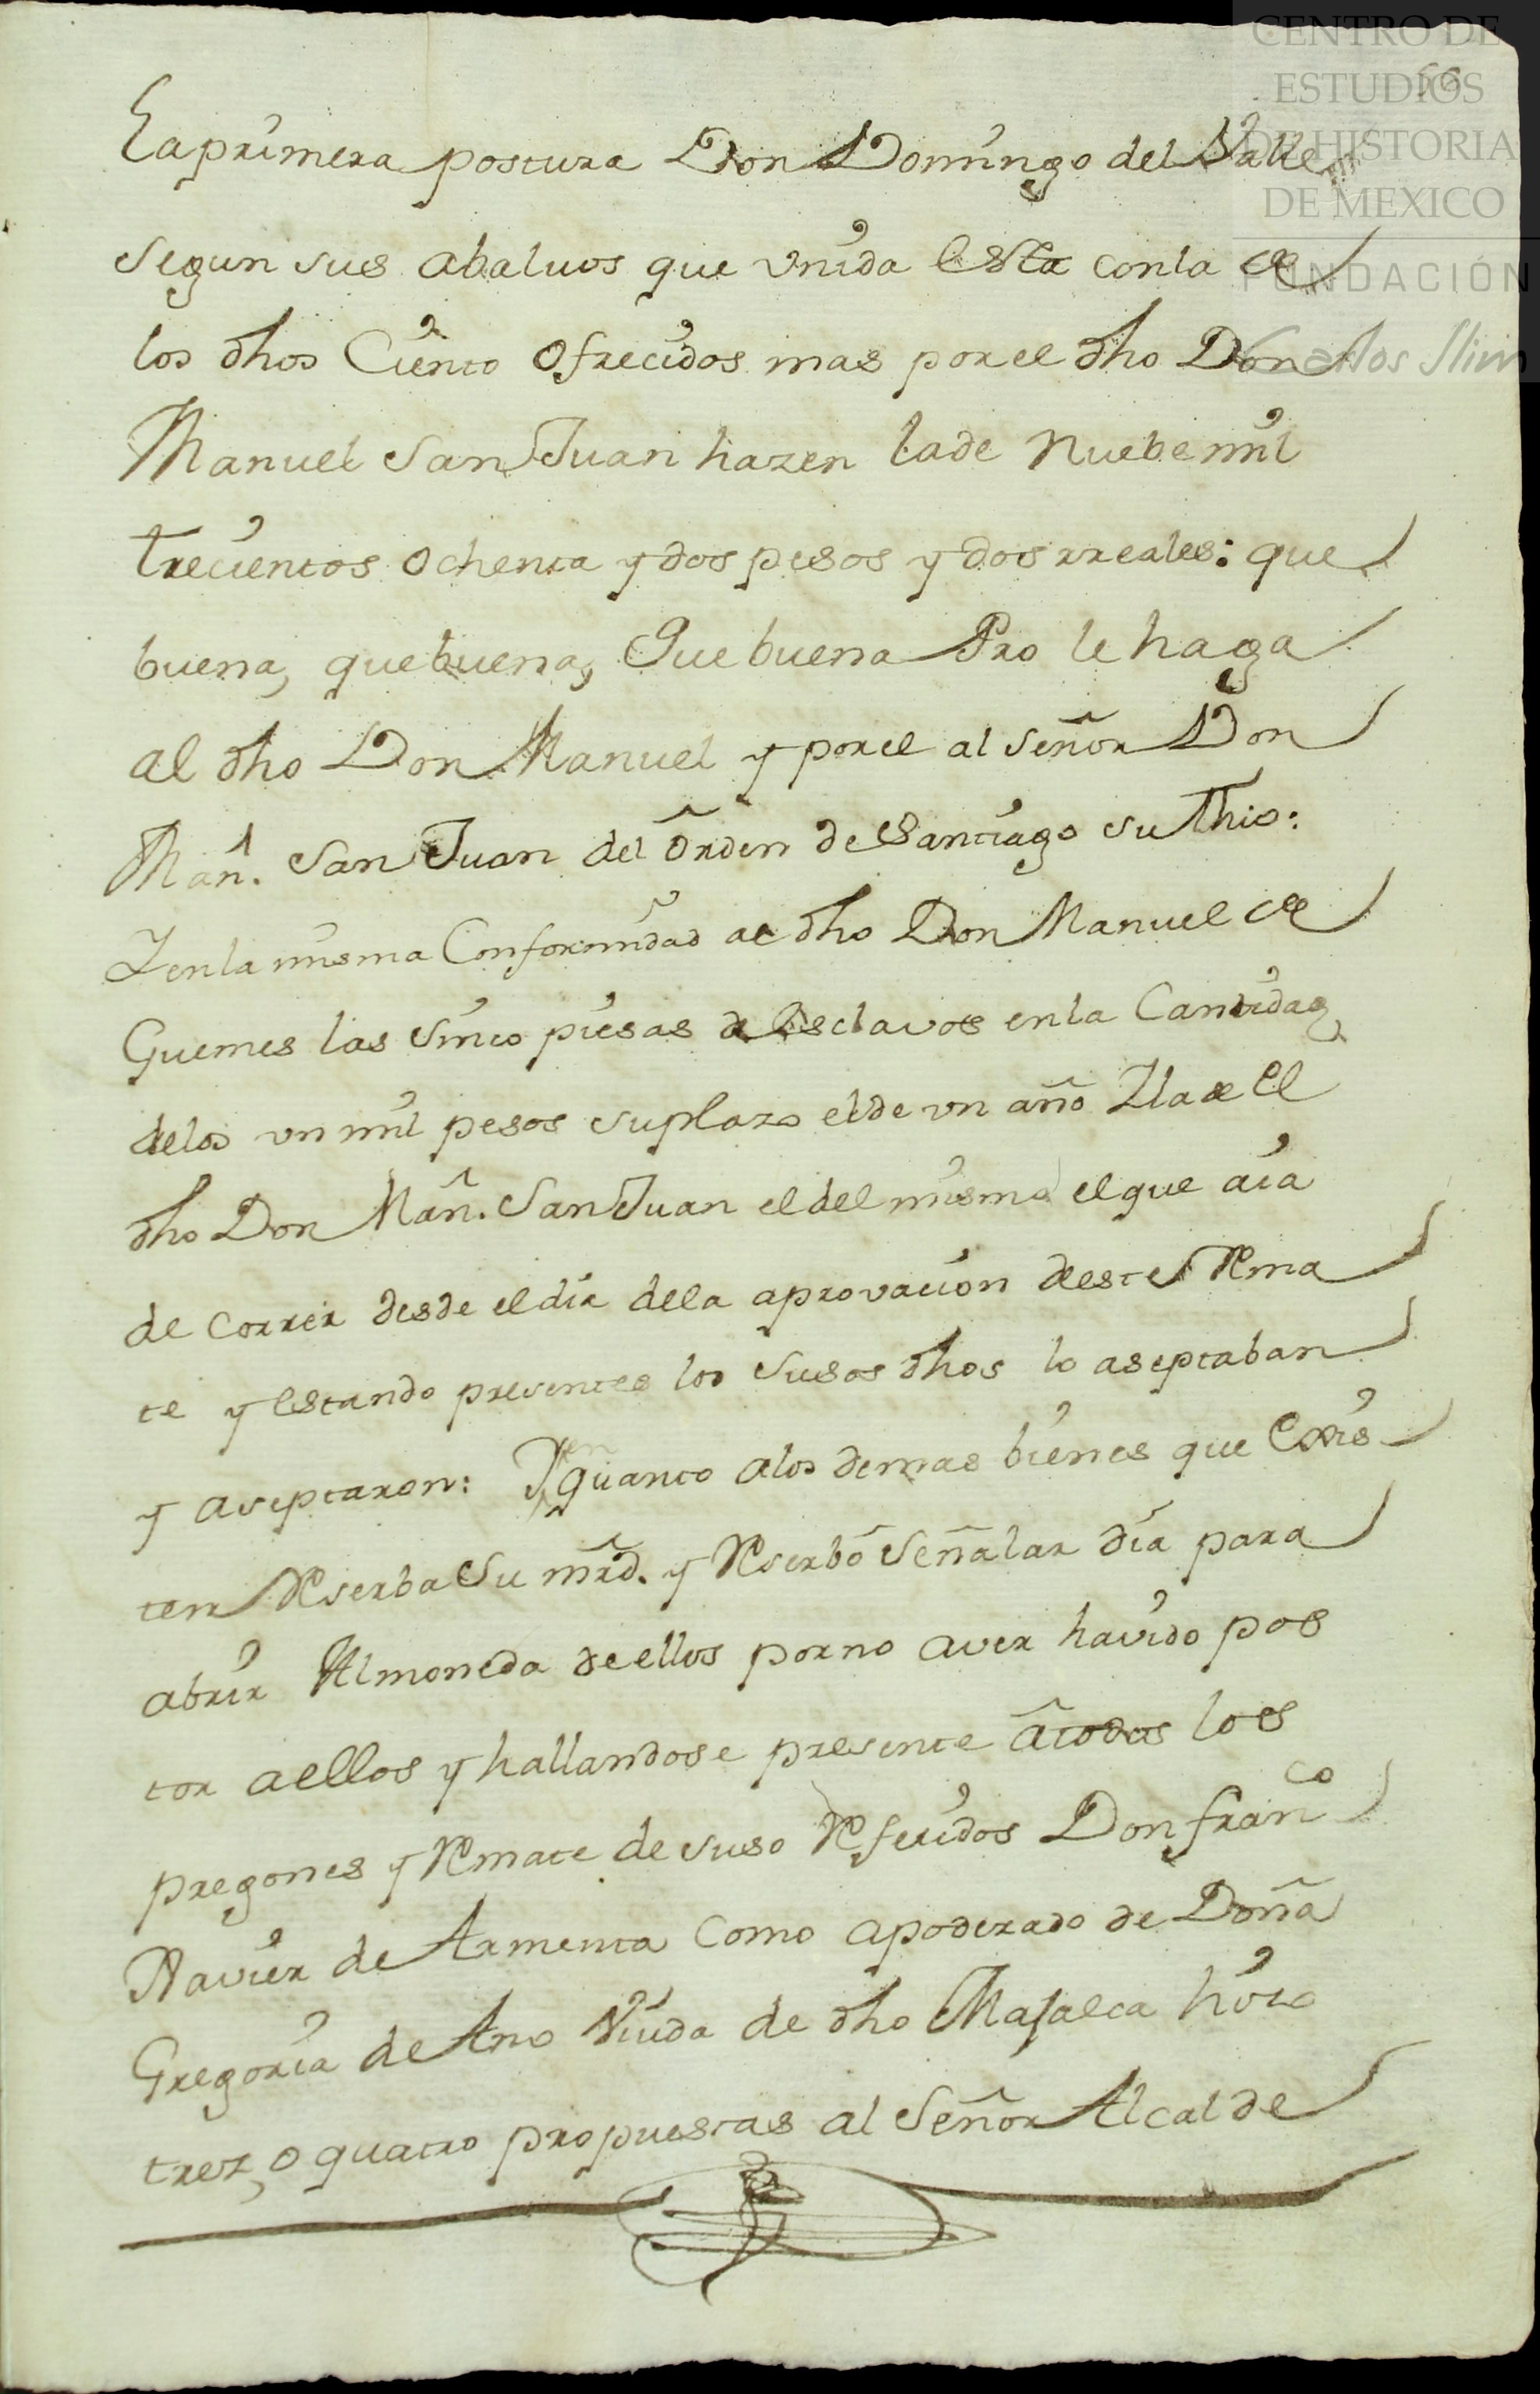 CENTRO DE
ESTUDIOS
DE HISTORIA
DE MEXICO
FUNDACIÓN
Carlos Slim
56
la primera postura Don Domingo del Valle
segun sus abaluos que unida esta con la de
los dhos Ciento ofrecidos mas por el dho Don
Manuel San Juan hazen la de Nuebe mil
trecientos ochenta y dos pesos y dos rreales: que
buena, que buena, Que buena Pro le haga
al dho Don Manuel y por el al Señor Don
Man.l San Juan del Orden de Santiago su Thio:
Y en la misma Conformidad al dho Don Manuel de
Guemes las sinco piesas de Esclavos en la Cantidad
de los un mil pesos su plazo el de un año Y la de el
dho Don Man.l San Juan el del mismo el que aia
de correr desde el dia de la aprovacion deste Rma
te y estando presentes los Susos dhos lo aseptaban
y aseptaron: Y en quanto a los demas bienes que Exis
ten Rserba Su mrd. y Rserbó Señalar dia para
abrir Almoneda de ellos por no aver havido pos
tor a ellos y hallandose presente a todos los
pregones y Rmate de suso Rferidos Don fran.co
Xavier de Armenta Como apoderado de Doña
Gregoria de Ano Viuda de dho Majalca hizo
trez, o quatro propuestas al Señor Alcalde